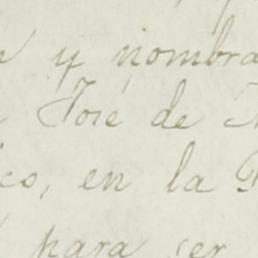 y nombra
José de
co, en la
para ser